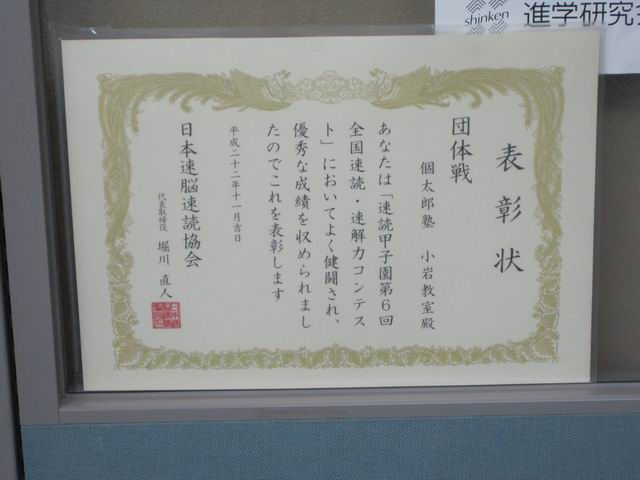 shinken
進学研究会
表彰状
団体戦
個太郎塾 小岩教室殿
あなたは「速読甲子園第6回
全国速読・速解力コンテス
ト」においてよく健闘され、
優秀な成績を収められまし
たのでこれを表彰します
平成二十二年十一月吉日
日本速脳速読協会
代表取締役 堀川 直人